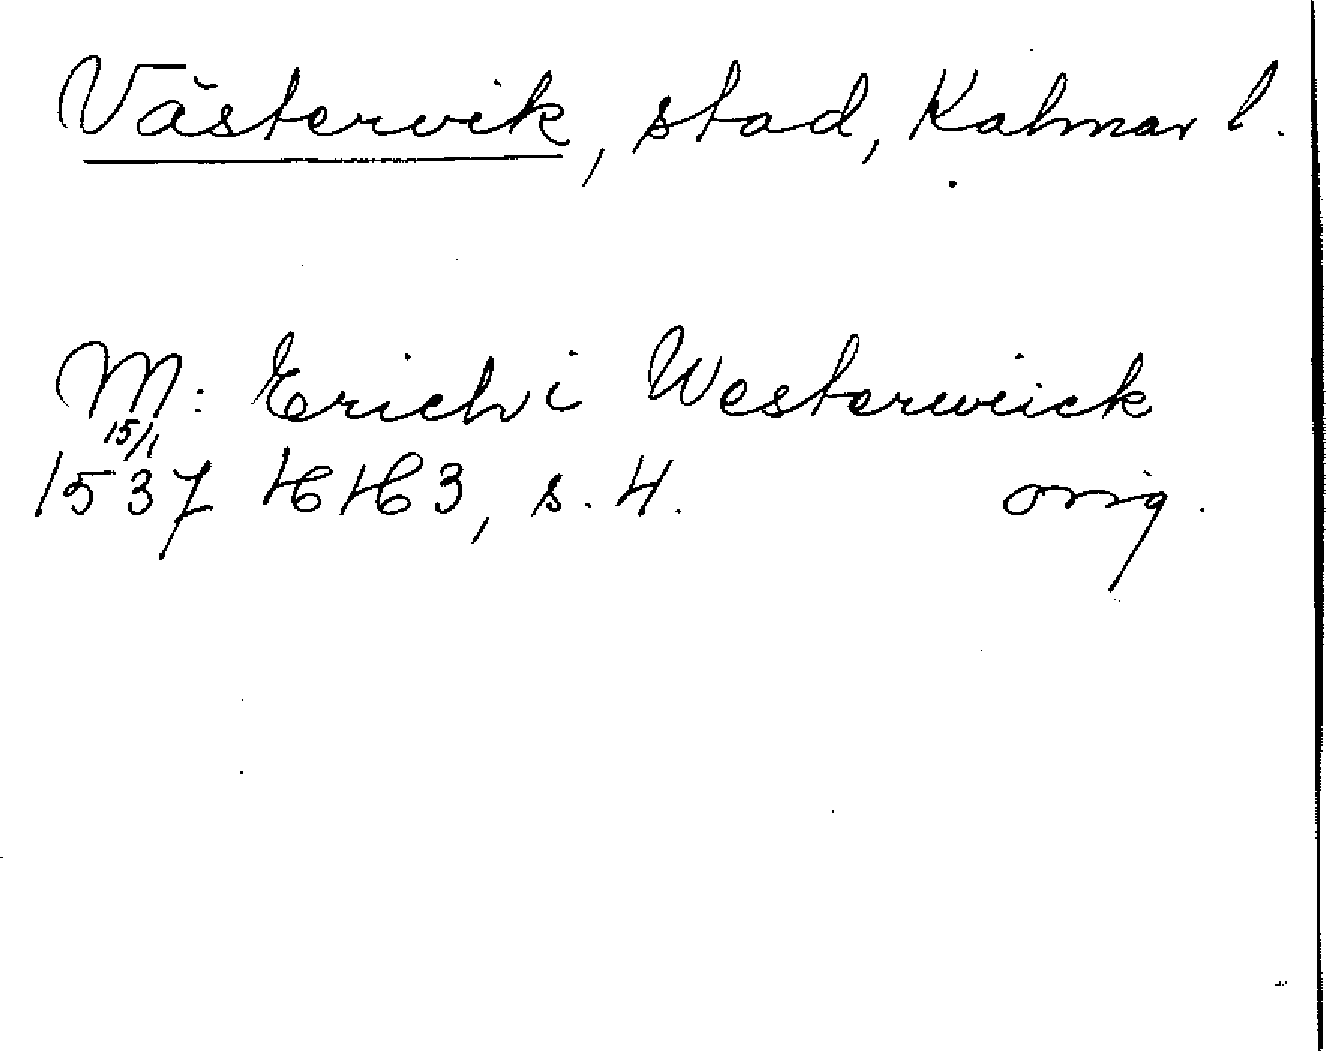 Västervik, stad, Kalmar l.
M: Erich i Westerwiick
15/1
1537 HH3, s. 4. orig.